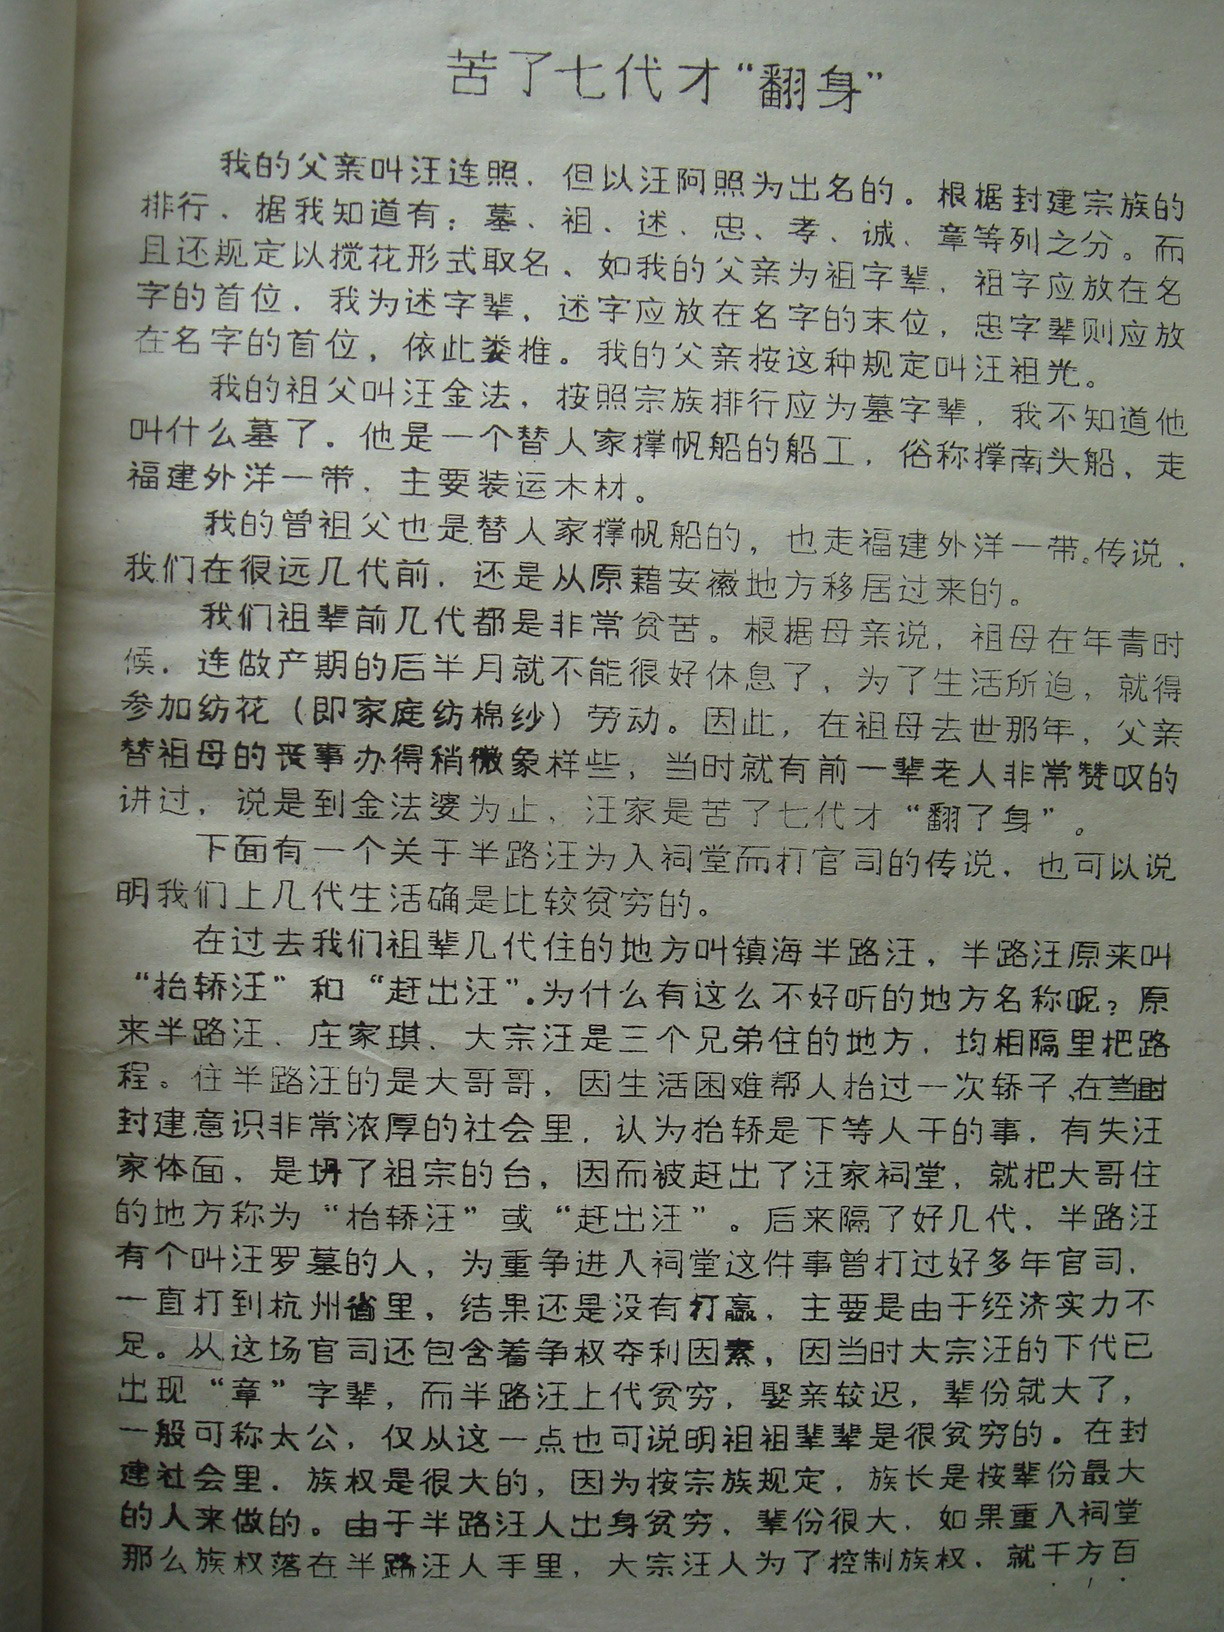 苦了七代才“翻身”
我的父亲叫汪连照，但以汪阿照为出名的。根据封建宗族的
排行，据我知道有：墓、祖、述、忠、孝、诚、章等列之分。而
且还规定以搅花形式取名、如我的父亲为祖字辈，祖字应放在名
字的首位，我为述字辈，述字应放在名字的末位，忠字辈则应放
在名字的首位，依此类推。我的父亲按这种规定叫汪祖光。
我的祖父叫汪金法，按照宗族排行应为墓字辈，我不知道他
叫什么墓了。他是一个替人家撑帆船的船工，俗称撑南头船，走
福建外洋一带，主要装运木材。
我的曾祖父也是替人家撑帆船的，也走福建外洋一带。传说，
我们在很远几代前，还是从原藉安徽地方移居过来的。
我们祖辈前几代都是非常贫苦。根据母亲说，祖母在年青时
候，连做产期的后半月就不能很好休息了，为了生活所迫，就得
参加纺花（即家庭纺棉纱）劳动。因此，在祖母去世那年，父亲
替祖母的丧事办得稍微象样些，当时就有前一辈老人非常赞叹的
讲过，说是到金法婆为止，汪家是苦了七代才“翻了身”。
下面有一个关于半路汪为入祠堂而打官司的传说，也可以说
明我们上几代生活确是比较贫穷的。
在过去我们祖辈几代住的地方叫镇海半路汪，半路汪原来叫
“抬轿汪”和“赶出汪”。为什么有这么不好听的地方名称呢？原
来半路汪、庄家琪、大宗汪是三个兄弟住的地方，均相隔里把路
程。住半路汪的是大哥哥，因生活困难帮人抬过一次轿子，在当时
封建意识非常浓厚的社会里，认为抬轿是下等人干的事，有失汪
家体面，是坍了祖宗的台，因而被赶出了汪家祠堂，就把大哥住
的地方称为“抬轿汪”或“赶出汪”。后来隔了好几代，半路汪
有个叫汪罗墓的人，为重争进入祠堂这件事曾打过好多年官司，
一直打到杭州省里，结果还是没有打赢，主要是由于经济实力不
足。从这场官司还包含着争权夺利因素，因当时大宗汪的下代已
出现“章”字辈，而半路汪上代贫穷，娶亲较迟，辈份就大了，
一般可称太公，仅从这一点也可说明祖祖辈辈是很贫穷的。在封
建社会里，族权是很大的，因为按宗族规定，族长是按辈份最大
的人来做的。由于半路汪人出身贫穷，辈份很大，如果重入祠堂
那么族权落在半路汪人手里，大宗汪人为了控制族权，就千方百
·1·